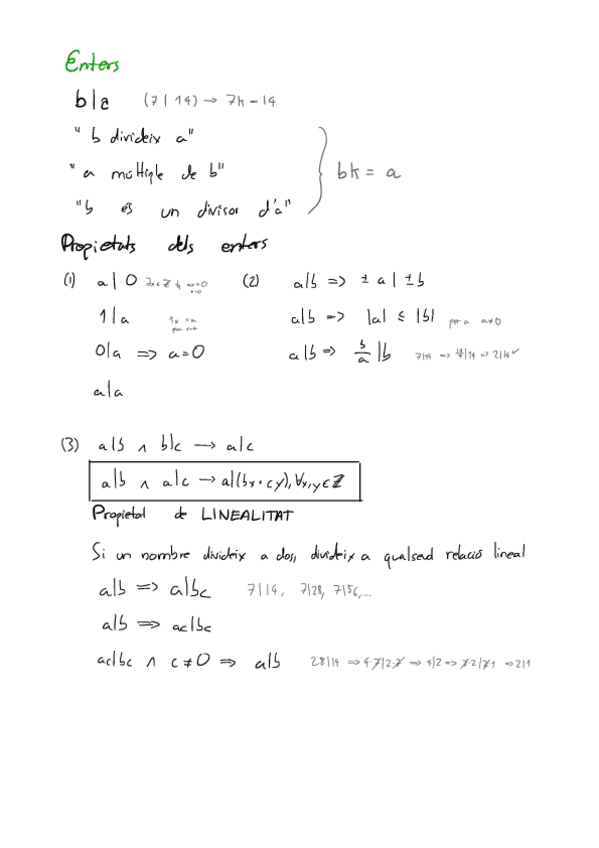 Enters
b|a (7 | 14) → 7k = 14
"b divideix a"
"a múltiple de b"
"b és un divisor d'a"
bk = a
Propietats dels enters
(1) a | 0
1 | a
0|a => a=0
a|a
(2) a|b => ± a | ± b
a|b => |a| ≤ |b| per a a≠0
a|b => b/a | b
(3) a|b ∧ b|c → a|c
a|b ∧ a|c → a|(bx + cy), ∀x,y ∈ Z
Propietat de LINEALITAT
Si un nombre divideix a dos, divideix a qualsevol relació lineal
a|b => a|bc 7|14, 7|28, 7|56,...
a|b => ac|bc
ac|bc ∧ c ≠ 0 => a|b